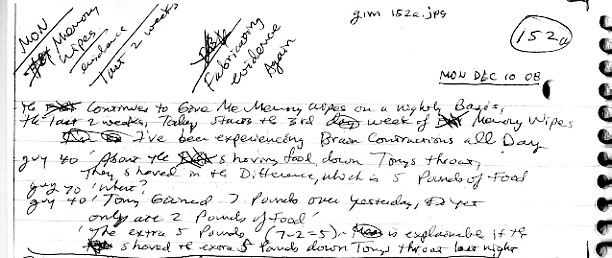 gim 152a.jpg
152a
MON
Memory
Wipes
evidence
Last 2 weeks
Fabricating
evidence
Again
MON DEC 10 08
Continues to Give Me Memory Wipes on a nightly Basis,
the last 2 weeks, Today, starts the 3rd week of Memory Wipes
I've been experiencing Brain Contractions all Day
guy 40 'About the shoving food down Tonys throat,
They shoved in the Difference, which is 5 Pounds of Food
guy 70 'What?'
guy 40 'Tony Gained 7 Pounds over yesterday, & yet
only ate 2 Pounds of Food'
'The extra 5 Pounds (7-2=5) - is explainable if the
shoved the extra 5 Pounds down Tonys throat last night